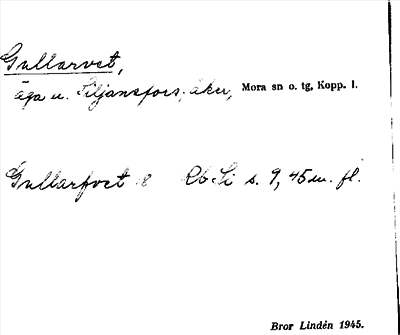 Gullarvet,
äga u. Siljansfors, åker, Mora sn o. tg, Kopp. l.
Gullarfvet 8 Rb Si s. 9, 45 m. fl.
Bror Lindén 1945.